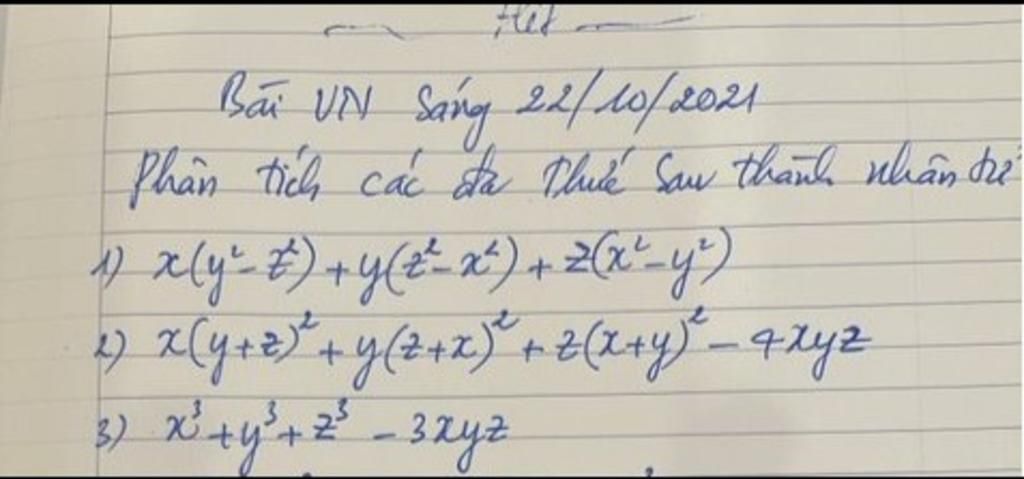 Hết
Bài VN Sáng 22/10/2021
Phân tích các đa thức sau thành nhân tử
1) x(y²-z²)+y(z²-x²)+z(x²-y²)
2) x(y+z)²+y(z+x)²+z(x+y)²-4xyz
3) x³+y³+z³-3xyz